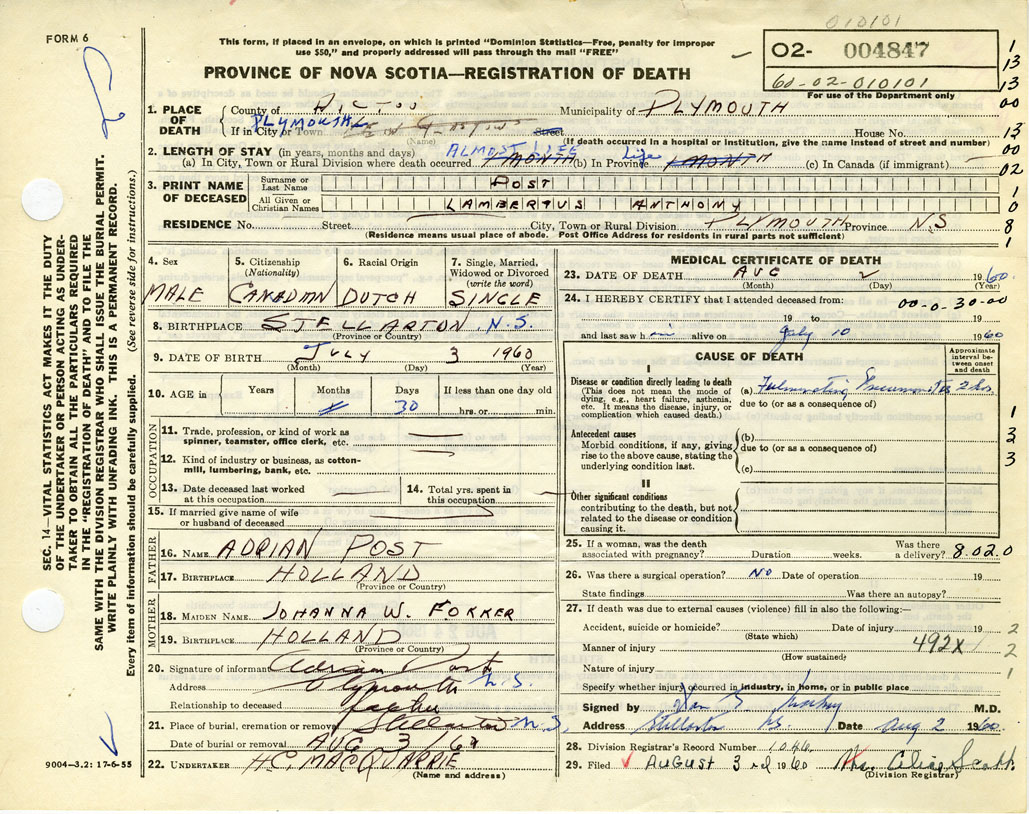 010101
FORM 6
This form, if placed in an envelope, on which is printed "Dominion Statistics—Free, penalty for improper
use $50," and properly addressed will pass through the mail "FREE"
02- 004847
60-02-010101
For use of the Department only
PROVINCE OF NOVA SCOTIA—REGISTRATION OF DEATH
1. PLACE OF DEATH
County of PICTOU Municipality of PLYMOUTH
If in City or Town PLYMOUTH Street House No.
(Name) (If death occurred in a hospital or institution, give the name instead of street and number)
2. LENGTH OF STAY (in years, months and days) ALMOST LIFE life
(a) In City, Town or Rural Division where death occurred 1 MONTH (b) In Province 1 MONTH (c) In Canada (if immigrant)
3. PRINT NAME OF DECEASED
Surname or Last Name POST
All Given or Christian Names LAMBERTUS ANTHONY
RESIDENCE No. Street City, Town or Rural Division PLYMOUTH Province N.S
(Residence means usual place of abode. Post Office Address for residents in rural parts not sufficient)
4. Sex 5. Citizenship (Nationality) 6. Racial Origin 7. Single, Married, Widowed or Divorced (write the word)
MALE CANADIAN DUTCH SINGLE
8. BIRTHPLACE STELLARTON N.S.
(Province or Country)
9. DATE OF BIRTH JULY 3 1960
(Month) (Day) (Year)
10. AGE in Years Months Days If less than one day old
30 hrs. or min.
OCCUPATION
11. Trade, profession, or kind of work as spinner, teamster, office clerk, etc.
12. Kind of industry or business, as cotton-mill, lumbering, bank, etc.
13. Date deceased last worked at this occupation
14. Total yrs. spent in this occupation
15. If married give name of wife or husband of deceased
FATHER
16. NAME ADRIAN POST
17. BIRTHPLACE HOLLAND
(Province or Country)
MOTHER
18. MAIDEN NAME JOHANNA W. FOKKER
19. BIRTHPLACE HOLLAND
(Province or Country)
20. Signature of informant Adrian Post
Address Plymouth N.S.
Relationship to deceased father
21. Place of burial, cremation or removal Stellarton N.S,
Date of burial or removal AUG 3/60
22. UNDERTAKER H.C. MACQUARRIE
(Name and address)
MEDICAL CERTIFICATE OF DEATH
23. DATE OF DEATH AUG 2 1960
(Month) (Day) (Year)
24. I HEREBY CERTIFY that I attended deceased from: 00-0-30-00
19 to 19
and last saw him alive on July 10 1960
CAUSE OF DEATH
Approximate interval between onset and death
I
Disease or condition directly leading to death
(This does not mean the mode of dying, e.g., heart failure, asthenia, etc. It means the disease, injury, or complication which caused death.)
(a) Fulminating Pneumonitis 2 hrs.
due to (or as a consequence of)
Antecedent causes
Morbid conditions, if any, giving rise to the above cause, stating the underlying condition last.
(b)
due to (or as a consequence of)
(c)
II
Other significant conditions
contributing to the death, but not related to the disease or condition causing it.
25. If a woman, was the death associated with pregnancy? Duration weeks. Was there a delivery? 8.02.0
26. Was there a surgical operation? NO Date of operation 19
State findings Was there an autopsy?
27. If death was due to external causes (violence) fill in also the following:—
Accident, suicide or homicide? Date of injury 19
(State which)
Manner of injury 492X
(How sustained)
Nature of injury
Specify whether injury occurred in industry, in home, or in public place
Signed by M.D.
Address Stellarton NS. Date Aug 2 1960.
28. Division Registrar's Record Number 1046
29. Filed AUGUST 3rd 1960 Mrs. Scott
(Division Registrar)
SEC. 14—VITAL STATISTICS ACT MAKES IT THE DUTY
OF THE UNDERTAKER OR PERSON ACTING AS UNDER-
TAKER TO OBTAIN ALL THE PARTICULARS REQUIRED
IN THE "REGISTRATION OF DEATH" AND TO FILE THE
SAME WITH THE DIVISION REGISTRAR WHO SHALL ISSUE THE BURIAL PERMIT.
WRITE PLAINLY WITH UNFADING INK. THIS IS A PERMANENT RECORD.
Every item of information should be carefully supplied. (See reverse side for instructions.)
9004—3.2: 17-6-55
1
13
13
00
13
00
02
1
0
8
1
1
2
3
2
2
1